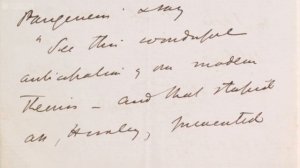 Pangenesis & say
"See this wonderful
anticipation of our modern
Theories – and that stupid
ass, Huxley, prevented